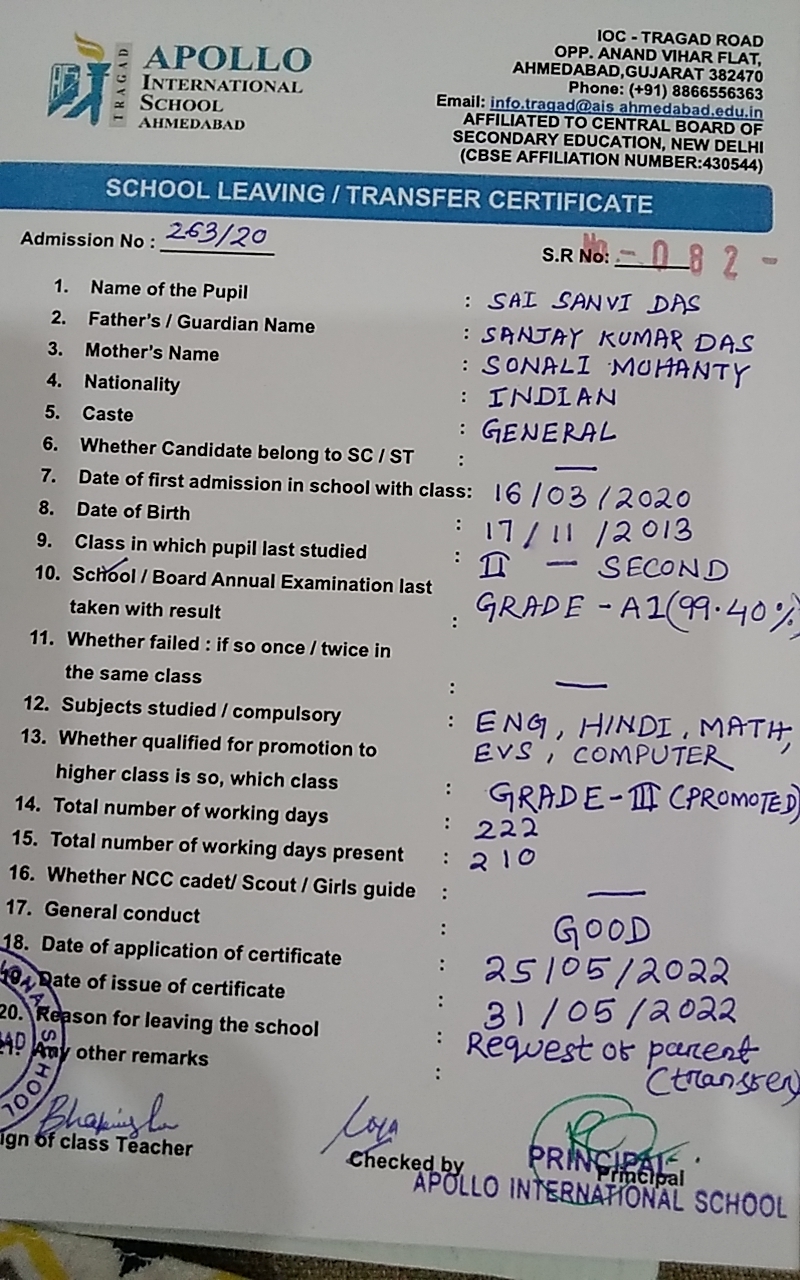 TRAGAD
APOLLO
INTERNATIONAL
SCHOOL
AHMEDABAD
IOC - TRAGAD ROAD
OPP. ANAND VIHAR FLAT,
AHMEDABAD,GUJARAT 382470
Phone: (+91) 8866556363
Email: info.tragad@ais ahmedabad.edu.in
AFFILIATED TO CENTRAL BOARD OF
SECONDARY EDUCATION, NEW DELHI
(CBSE AFFILIATION NUMBER:430544)
SCHOOL LEAVING / TRANSFER CERTIFICATE
Admission No : 263/20
S.R No: No - 082 -
1. Name of the Pupil : SAI SANVI DAS
2. Father's / Guardian Name : SANJAY KUMAR DAS
3. Mother's Name : SONALI MOHANTY
4. Nationality : INDIAN
5. Caste : GENERAL
6. Whether Candidate belong to SC / ST : —
7. Date of first admission in school with class: 16/03/2020
8. Date of Birth : 17/11/2013
9. Class in which pupil last studied : II — SECOND
10. School / Board Annual Examination last
taken with result : GRADE - A1(99.40%)
11. Whether failed : if so once / twice in
the same class : —
12. Subjects studied / compulsory : ENG, HINDI, MATH,
EVS, COMPUTER
13. Whether qualified for promotion to
higher class is so, which class : GRADE-III (PROMOTED)
14. Total number of working days : 222
15. Total number of working days present : 210
16. Whether NCC cadet/ Scout / Girls guide : —
17. General conduct : GOOD
18. Date of application of certificate : 25/05/2022
19. Date of issue of certificate : 31/05/2022
20. Reason for leaving the school : Request of parent
(transfer)
21. Any other remarks :
ign of class Teacher
Checked by
Principal
PRINCIPAL
APOLLO INTERNATIONAL SCHOOL